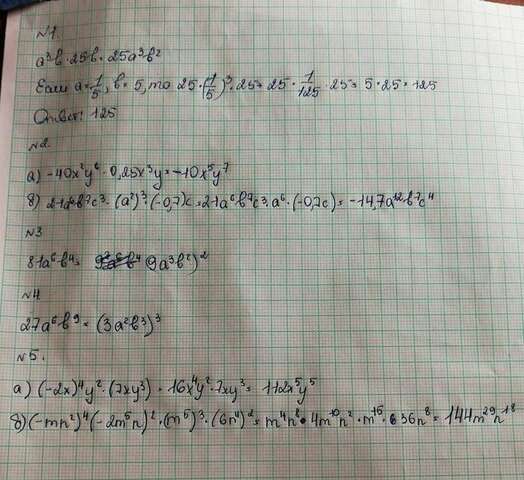 №1.
a³b · 25b = 25a³b²
Если a = 1/5, b = 5, то 25 · (1/5)³ · 25 = 25 · 1/125 · 25 = 5 · 25 = 125
Ответ: 125
№2
а) -40x²y⁶ · 0,25x³y = -10x⁵y⁷
б) 21a⁶b⁷c³ · (a²)³ · (-0,7)c = 21a⁶b⁷c³ · a⁶ · (-0,7c) = -14,7a¹²b⁷c⁴
№3
81a⁶b⁴ = 9a³b²)²
№4
27a⁶b⁹ = (3a²b³)³
№5.
а) (-2x)⁴y² · (7xy³) = 16x⁴y² · 7xy³ = 112x⁵y⁵
б) (-mn²)⁴(-2m⁵n)² · (m⁵)³ · (6n⁴)² = m⁴n⁸ · 4m¹⁰n² · m¹⁵ · 36n⁸ = 144m²⁹n¹⁸